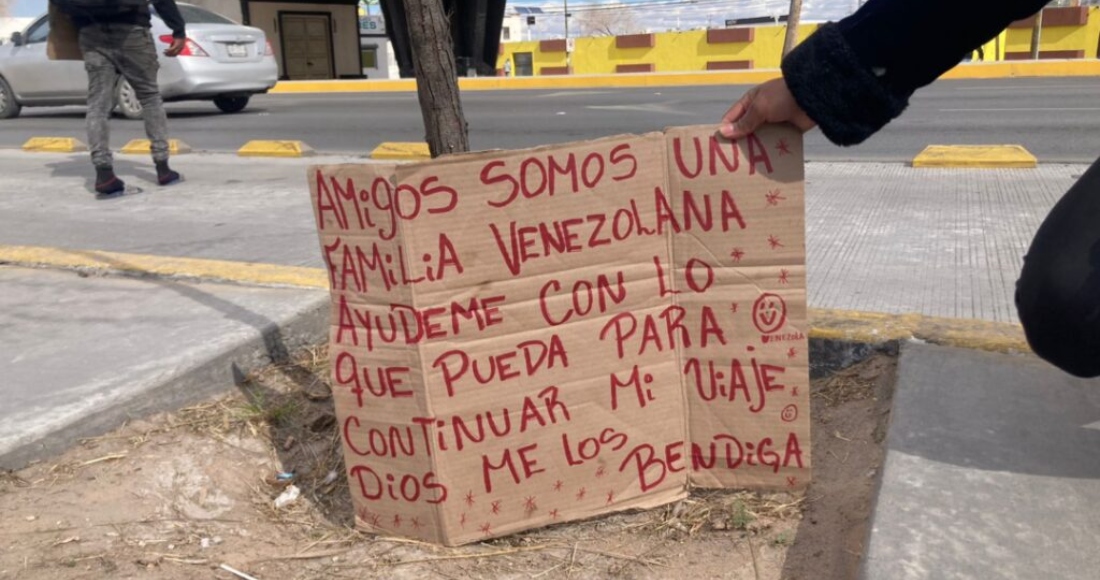 AMigOS SOMOS UNA
FAMiLiA VENEZOLANA
AYUDEME CON LO
QUE PUEDA PARA
VENEZOLA
CONTiNUAR Mi ViAJE
DiOS ME LOS BENDiGA